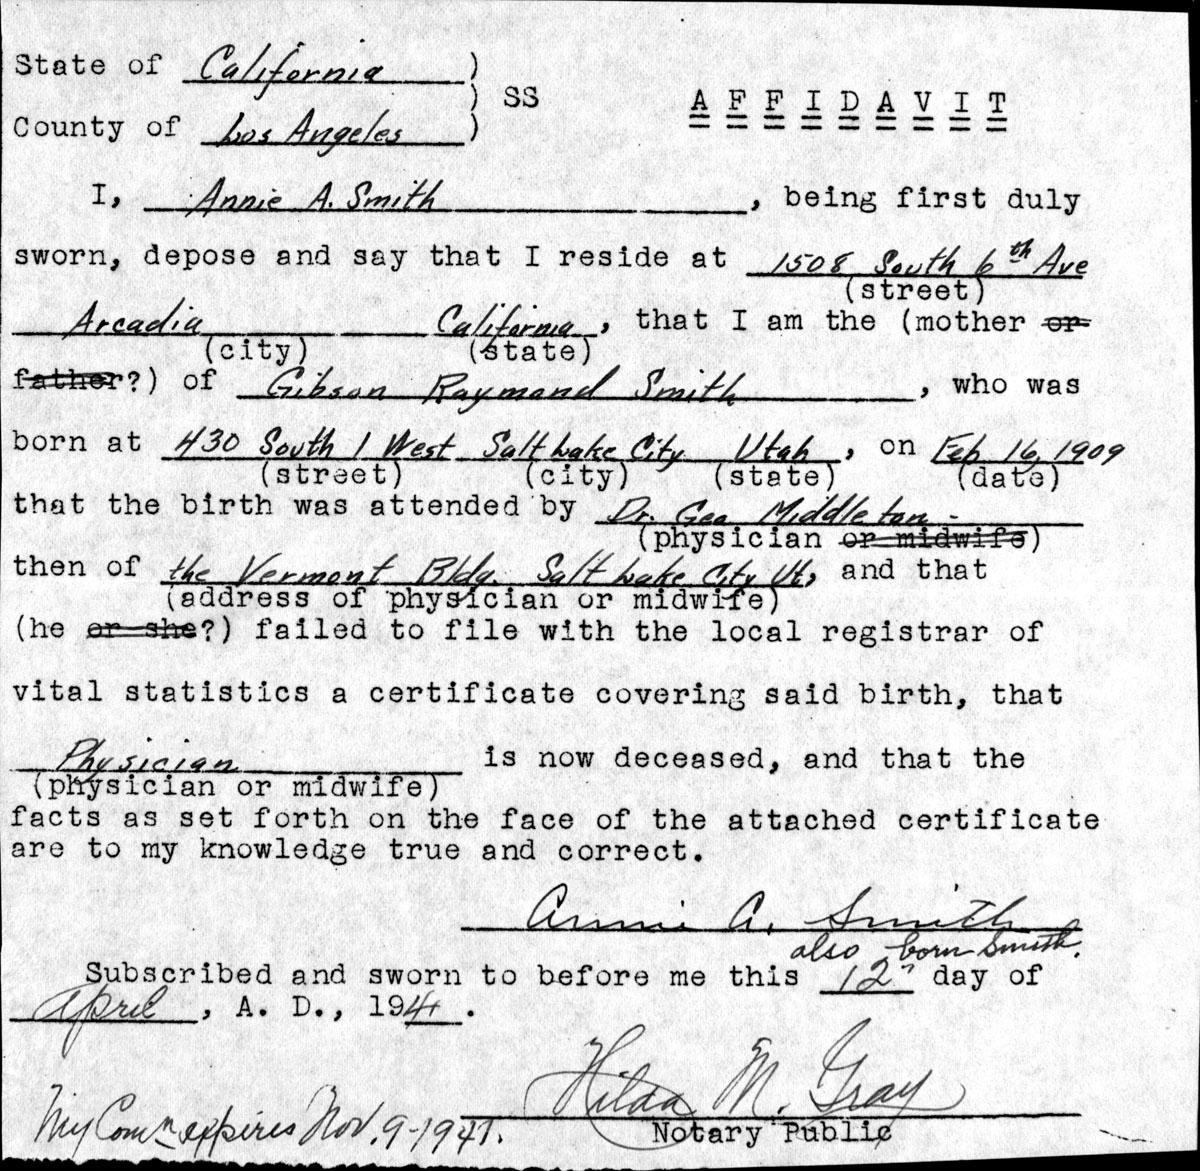 State of California )
) SS A F F I D A V I T
County of Los Angeles )
I, Annie A. Smith, being first duly
sworn, depose and say that I reside at 1508 South 6th Ave
(street)
Arcadia California, that I am the (mother or
(city) (state)
father?) of Gibson Raymond Smith, who was
born at 430 South 1 West Salt Lake City Utah, on Feb 16, 1909
(street) (city) (state) (date)
that the birth was attended by Dr. Geo Middleton -
(physician or midwife)
then of the Vermont Bldg. Salt Lake City Ut, and that
(address of physician or midwife)
(he or she?) failed to file with the local registrar of
vital statistics a certificate covering said birth, that
Physician is now deceased, and that the
(physician or midwife)
facts as set forth on the face of the attached certificate
are to my knowledge true and correct.
Annie A. Smith
also born Smith.
Subscribed and sworn to before me this 12" day of
April, A. D., 194
Hilda M. Gray
My Comm expires Nov. 9-1947.
Notary Public